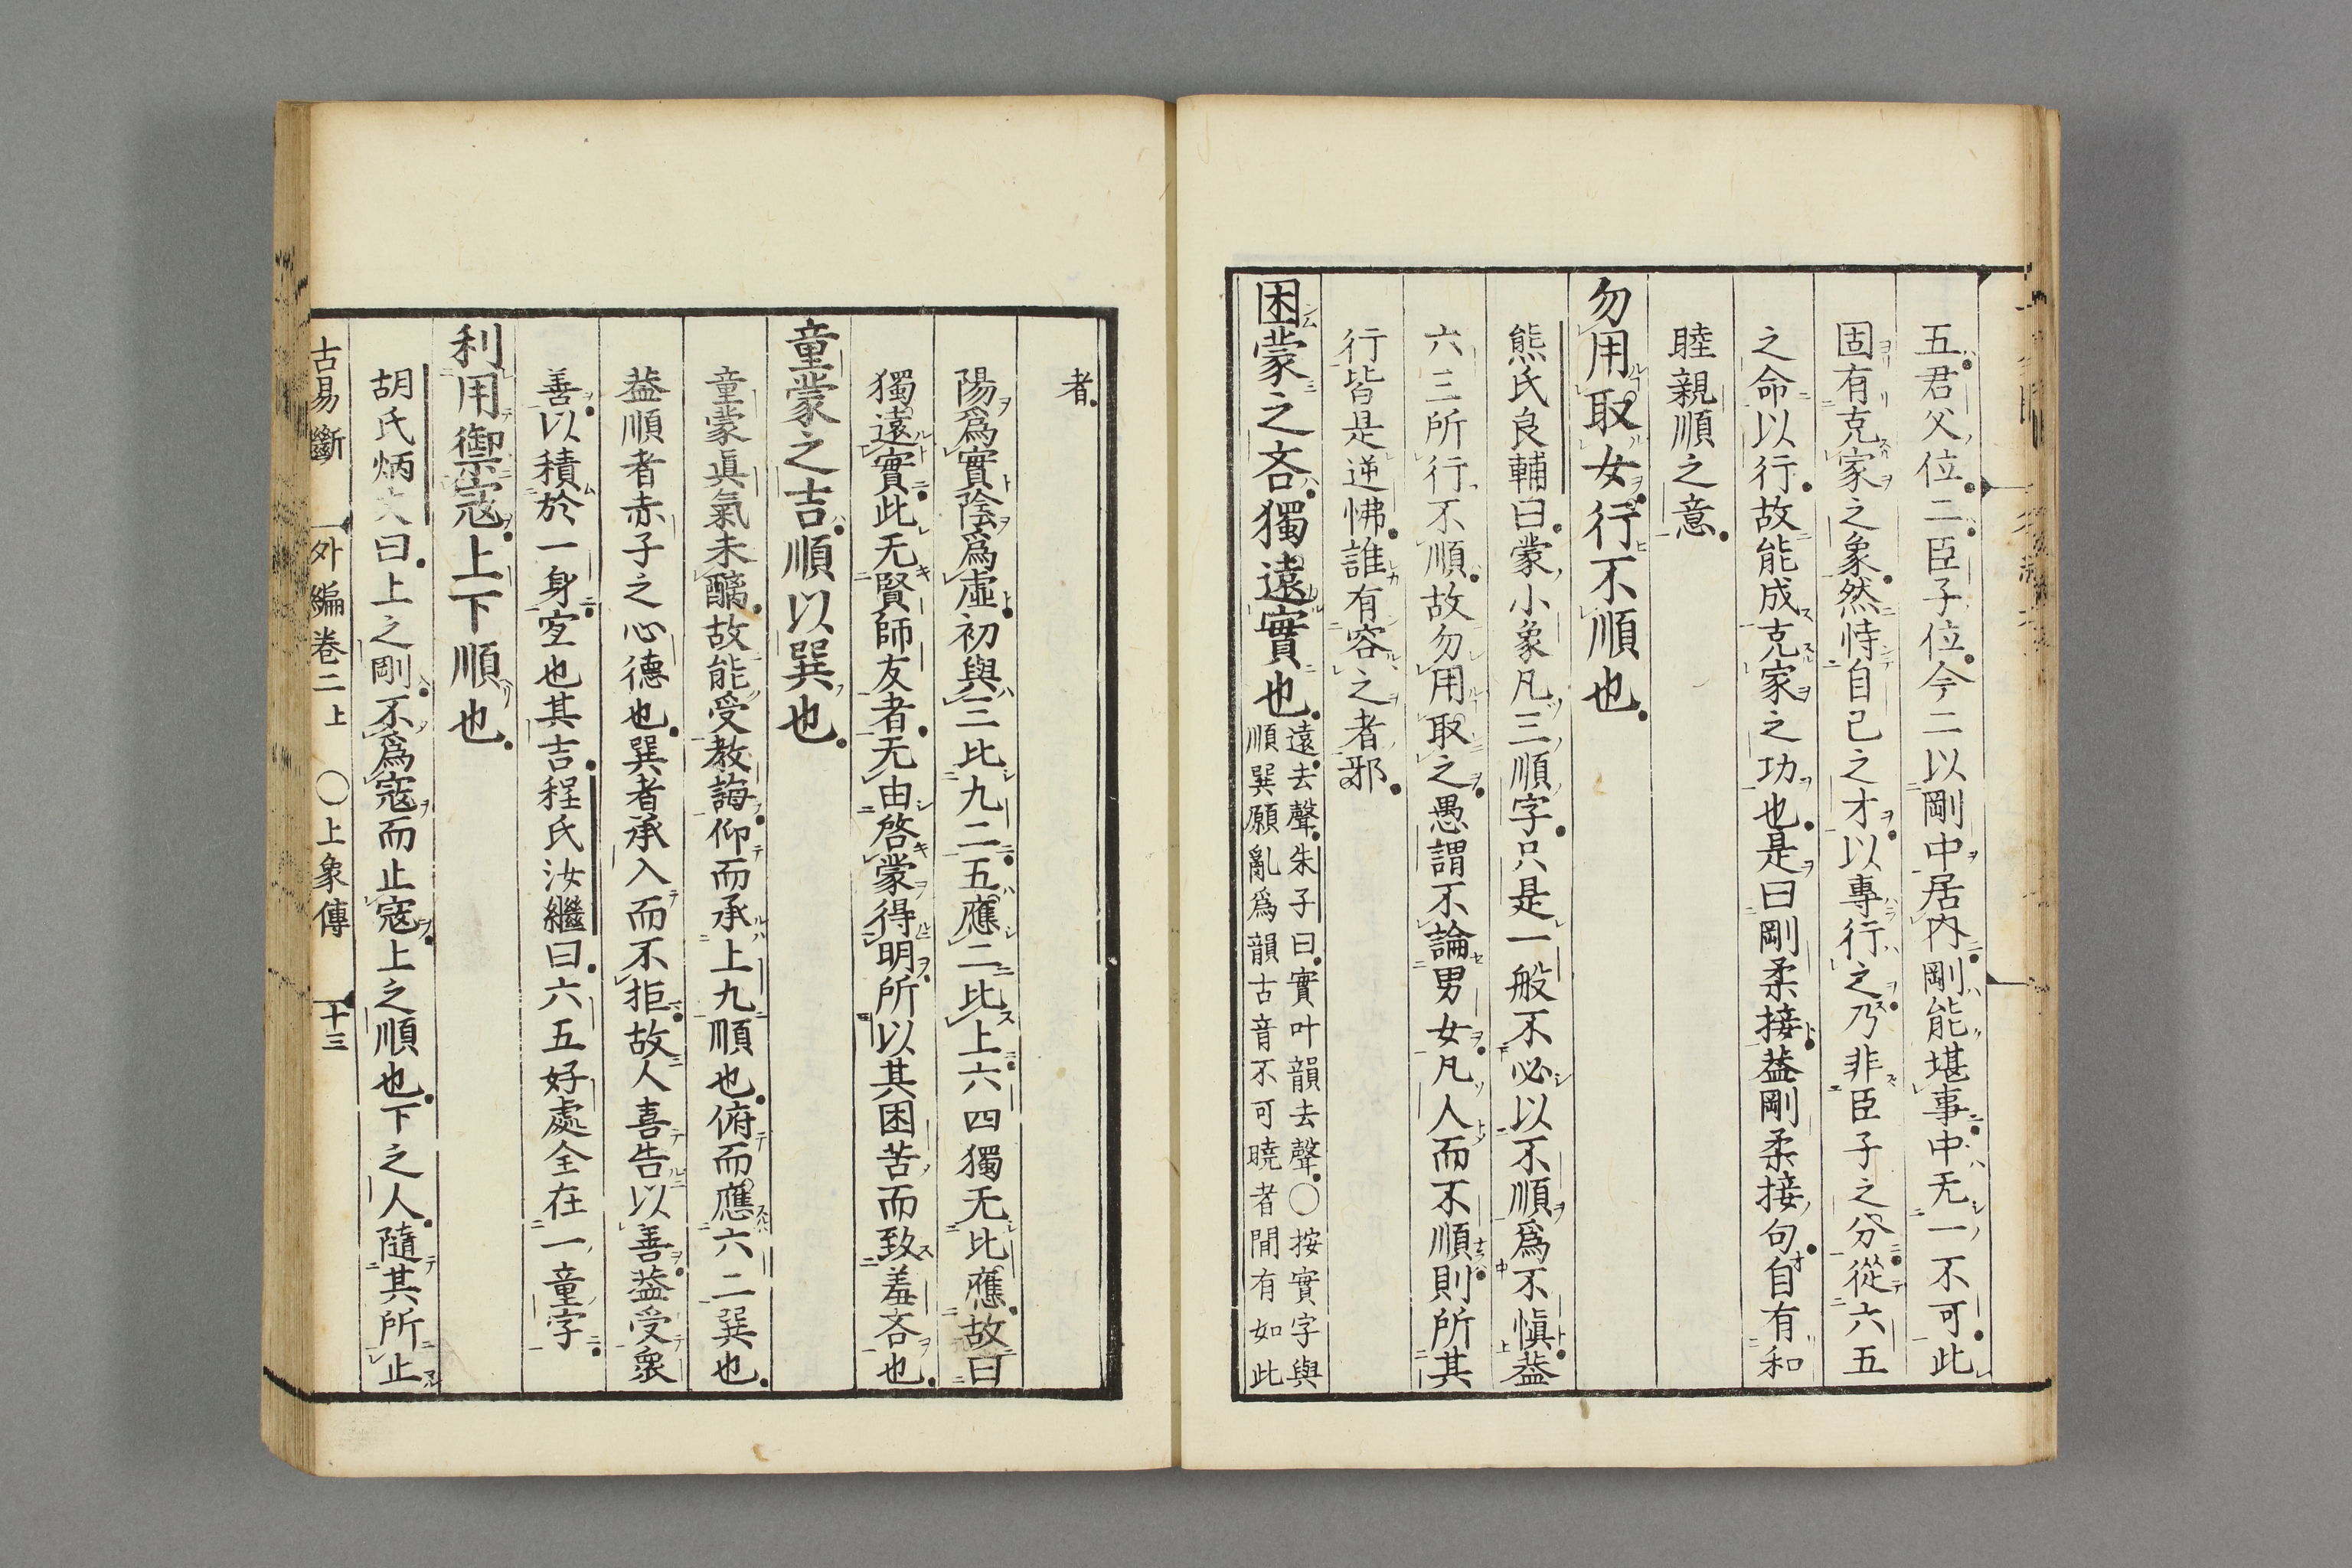 五君父位二臣子位今二以剛中居内剛能堪事中无一不可此
固有克家之象然恃自己之才以專行之乃非臣子之分從六五
之命以行故能成克家之功也是曰剛柔接葢剛柔接句自有和
睦親順之意
勿用取女行不順也
熊氏良輔曰蒙小象凡三順字只是一般不必以不順爲不愼葢
六三所行不順故勿用取之愚謂不論男女凡人而不順則所其
行皆是逆怫誰有容之者邪
困蒙之吝獨遠實也
遠去聲朱子曰實叶韻去聲〇按實字與
順巽願亂爲韻古音不可曉者間有如此
者
陽爲實陰爲虛初與三比九二五應二比上六四獨无比應故曰
獨遠實此无賢師友者无由啓蒙得明所以其困苦而致羞吝也
童蒙之吉順以巽也
童蒙眞氣未醨故能受教誨仰而承上九順也俯而應六二巽也
葢順者赤子之心德也巽者承入而不拒故人喜告以善葢受衆
善以積於一身空也其吉程氏汝繼曰六五好處全在一童字
利用禦寇上下順也
胡氏炳文曰上之剛不爲寇而止寇上之順也下之人隨其所止
古易斷　外編卷二上　〇上象傳　十三